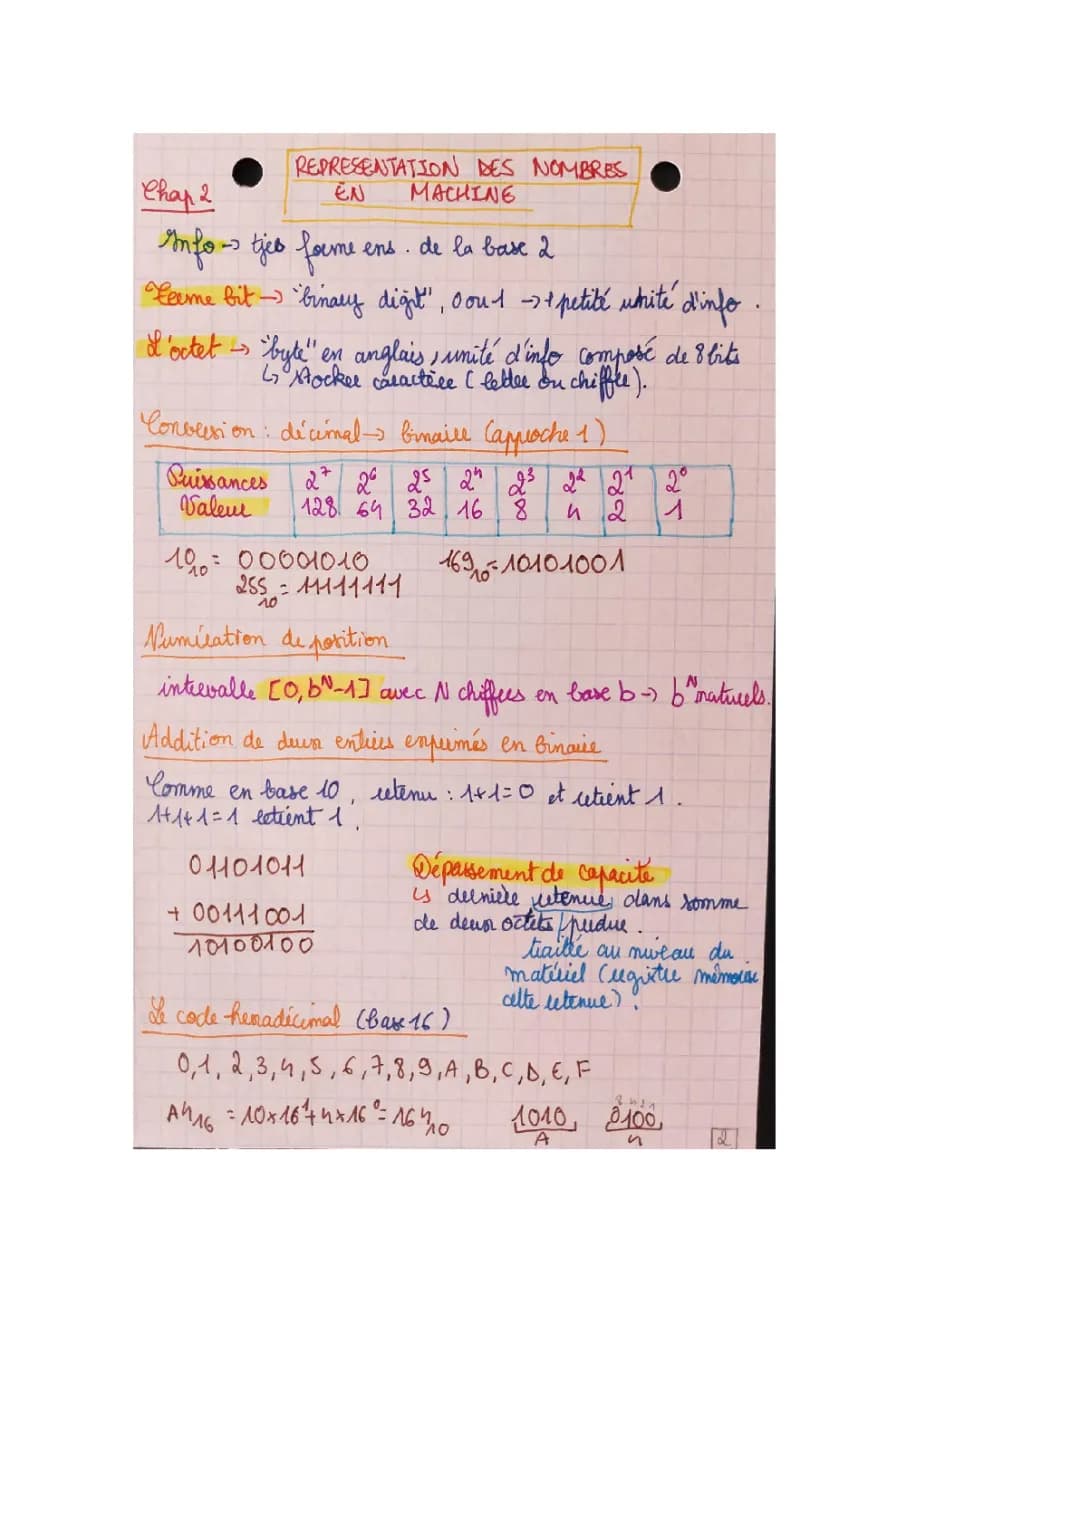 REPRESENTATION DES NOMBRES
Chap 2 EN MACHINE
Info → tjrs forme ens. de la base 2
Terme bit → "binary digit", 0 ou 1 → + petite unité d'info.
L'octet → "byte" en anglais, unité d'info composé de 8 bits
↳ Stocker caractère (lettre ou chiffre).
Conversion : décimal → binaire (approche 1)
Puissances 2⁷ 2⁶ 2⁵ 2⁴ 2³ 2² 2¹ 2⁰
Valeur 128 64 32 16 8 4 2 1
10₁₀ = 00001010 169₁₀ = 10101001
255₁₀ = 11111111
Numération de position
intervalle [0, bᴺ-1] avec N chiffres en base b → bᴺ naturels.
Addition de deux entiers exprimés en binaire
Comme en base 10, retenu : 1+1=0 et retient 1.
1+1+1=1 retient 1.
01101011
+ 00111001
10100100
Dépassement de capacité
↳ dernière retenue dans somme
de deux octets perdue.
traité au niveau du
matériel (registre mémorise
cette retenue).
Le code hexadécimal (base 16)
0,1,2,3,4,5,6,7,8,9,A,B,C,D,E,F
8 4 2 1
A4₁₆ = 10×16¹+4×16⁰=164₁₀ 1010 0100
A 4
2